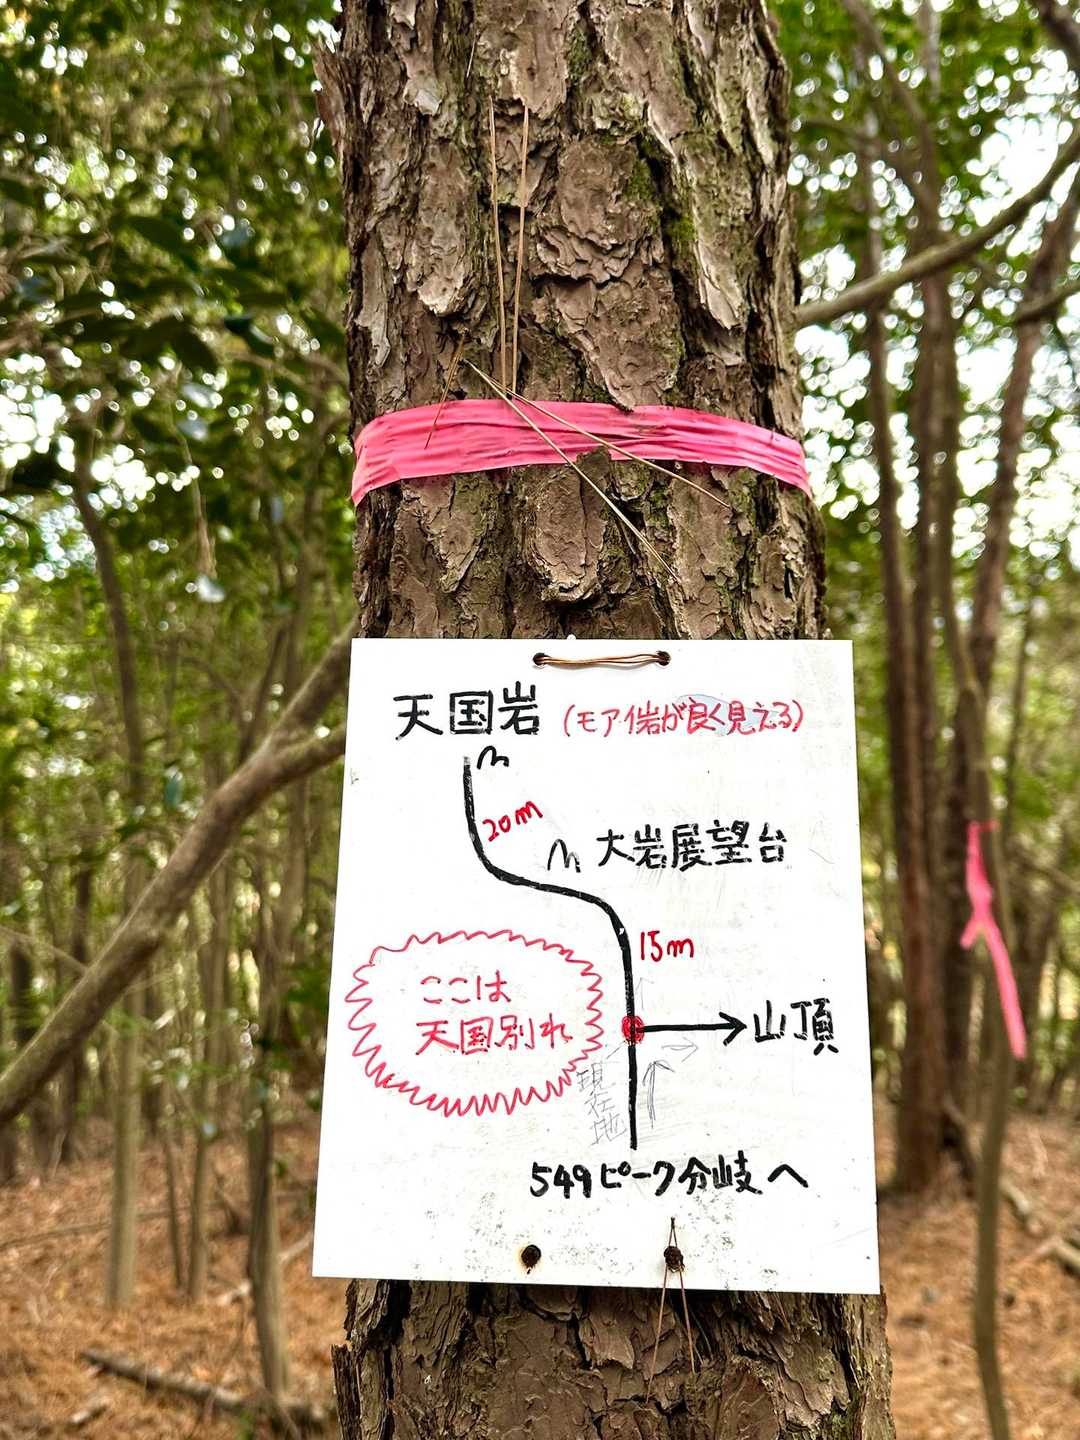 天国岩 (モアイ岩が良く見える)
20m
大岩展望台
15m
ここは
天国別れ
山頂
現在地
549ピーク分岐へ